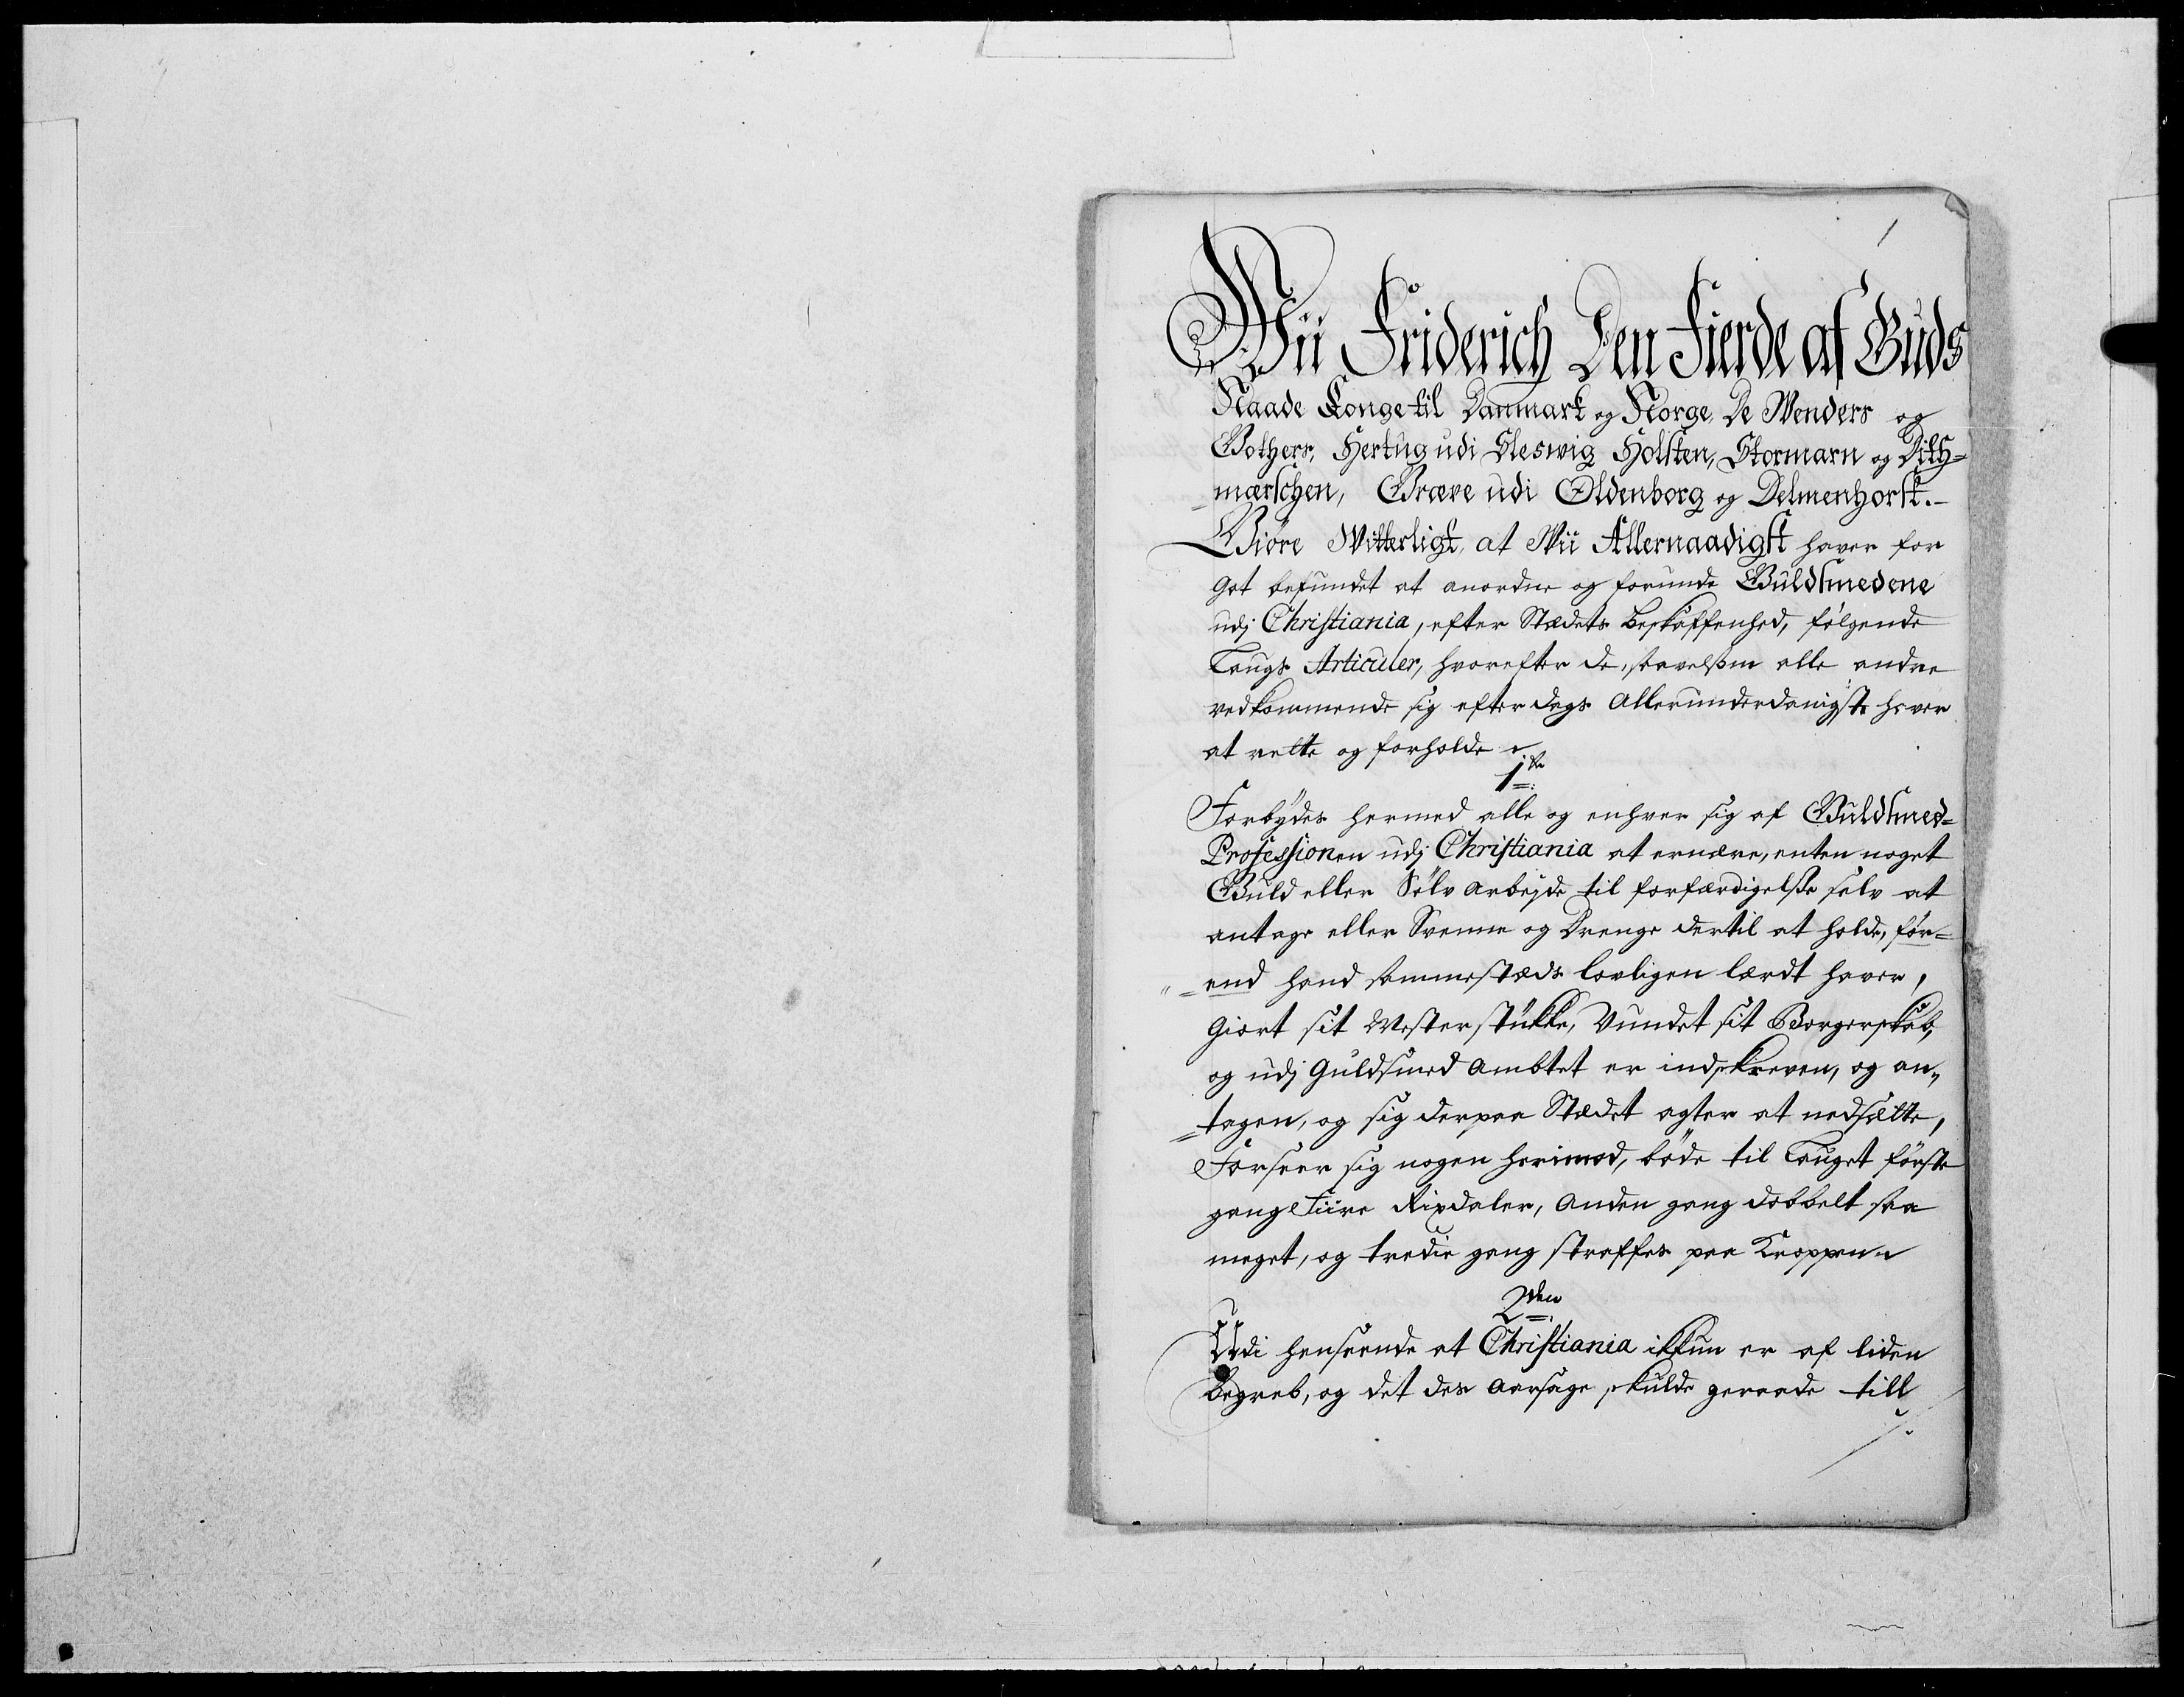 1
Wii Friderich Den Fierde af Guds
Naade Konge til Danmark og Norge, De Wenders og
Gothers, Hertug udi Slesvig Holsten, Stormarn og Dith=
=mærschen, Greve udi Oldenborg og Delmenhorst.-
Giöre Witterligt, at Wii Allernaadigst haver for
got befundet at anordne og forunde Guldsmedene
udj Christiania, efter Stædets beskaffenhed, fölgende
Laugs Articuler, hvorefter de, saavelsom alle andre
vedkommende sig efterdags Allerunderdanigste haver
at rette og forholde
1ste
Forbÿdes hermed alle og enhver sig af Guldsmed=
Professionen udj Christiania at ernære, enten noget
Guld eller Sölv arbejde til forfærdigelsse selv at
antage eller Svenne og Drenge dertil at holde, för=
=end hand sammestæds lovligen lærdt haver,
Giort sit Mesterstükke, Vundet sit Borgerskab,
og udj Guldsmed Ambtet er indskreven, og an„
=tagen, og sig derpaa Stædet agter at nedsætte,
Forseer sig nogen herimod, böde til Lauget förste
gang Fiire Rixdaler, Anden gang dobbelt saa
meget, og tredie gang straffes paa Kroppen
2den
Udi henseende at Christiania ikkun er af liden
begreb, og det des Aarsage skulde geraade till